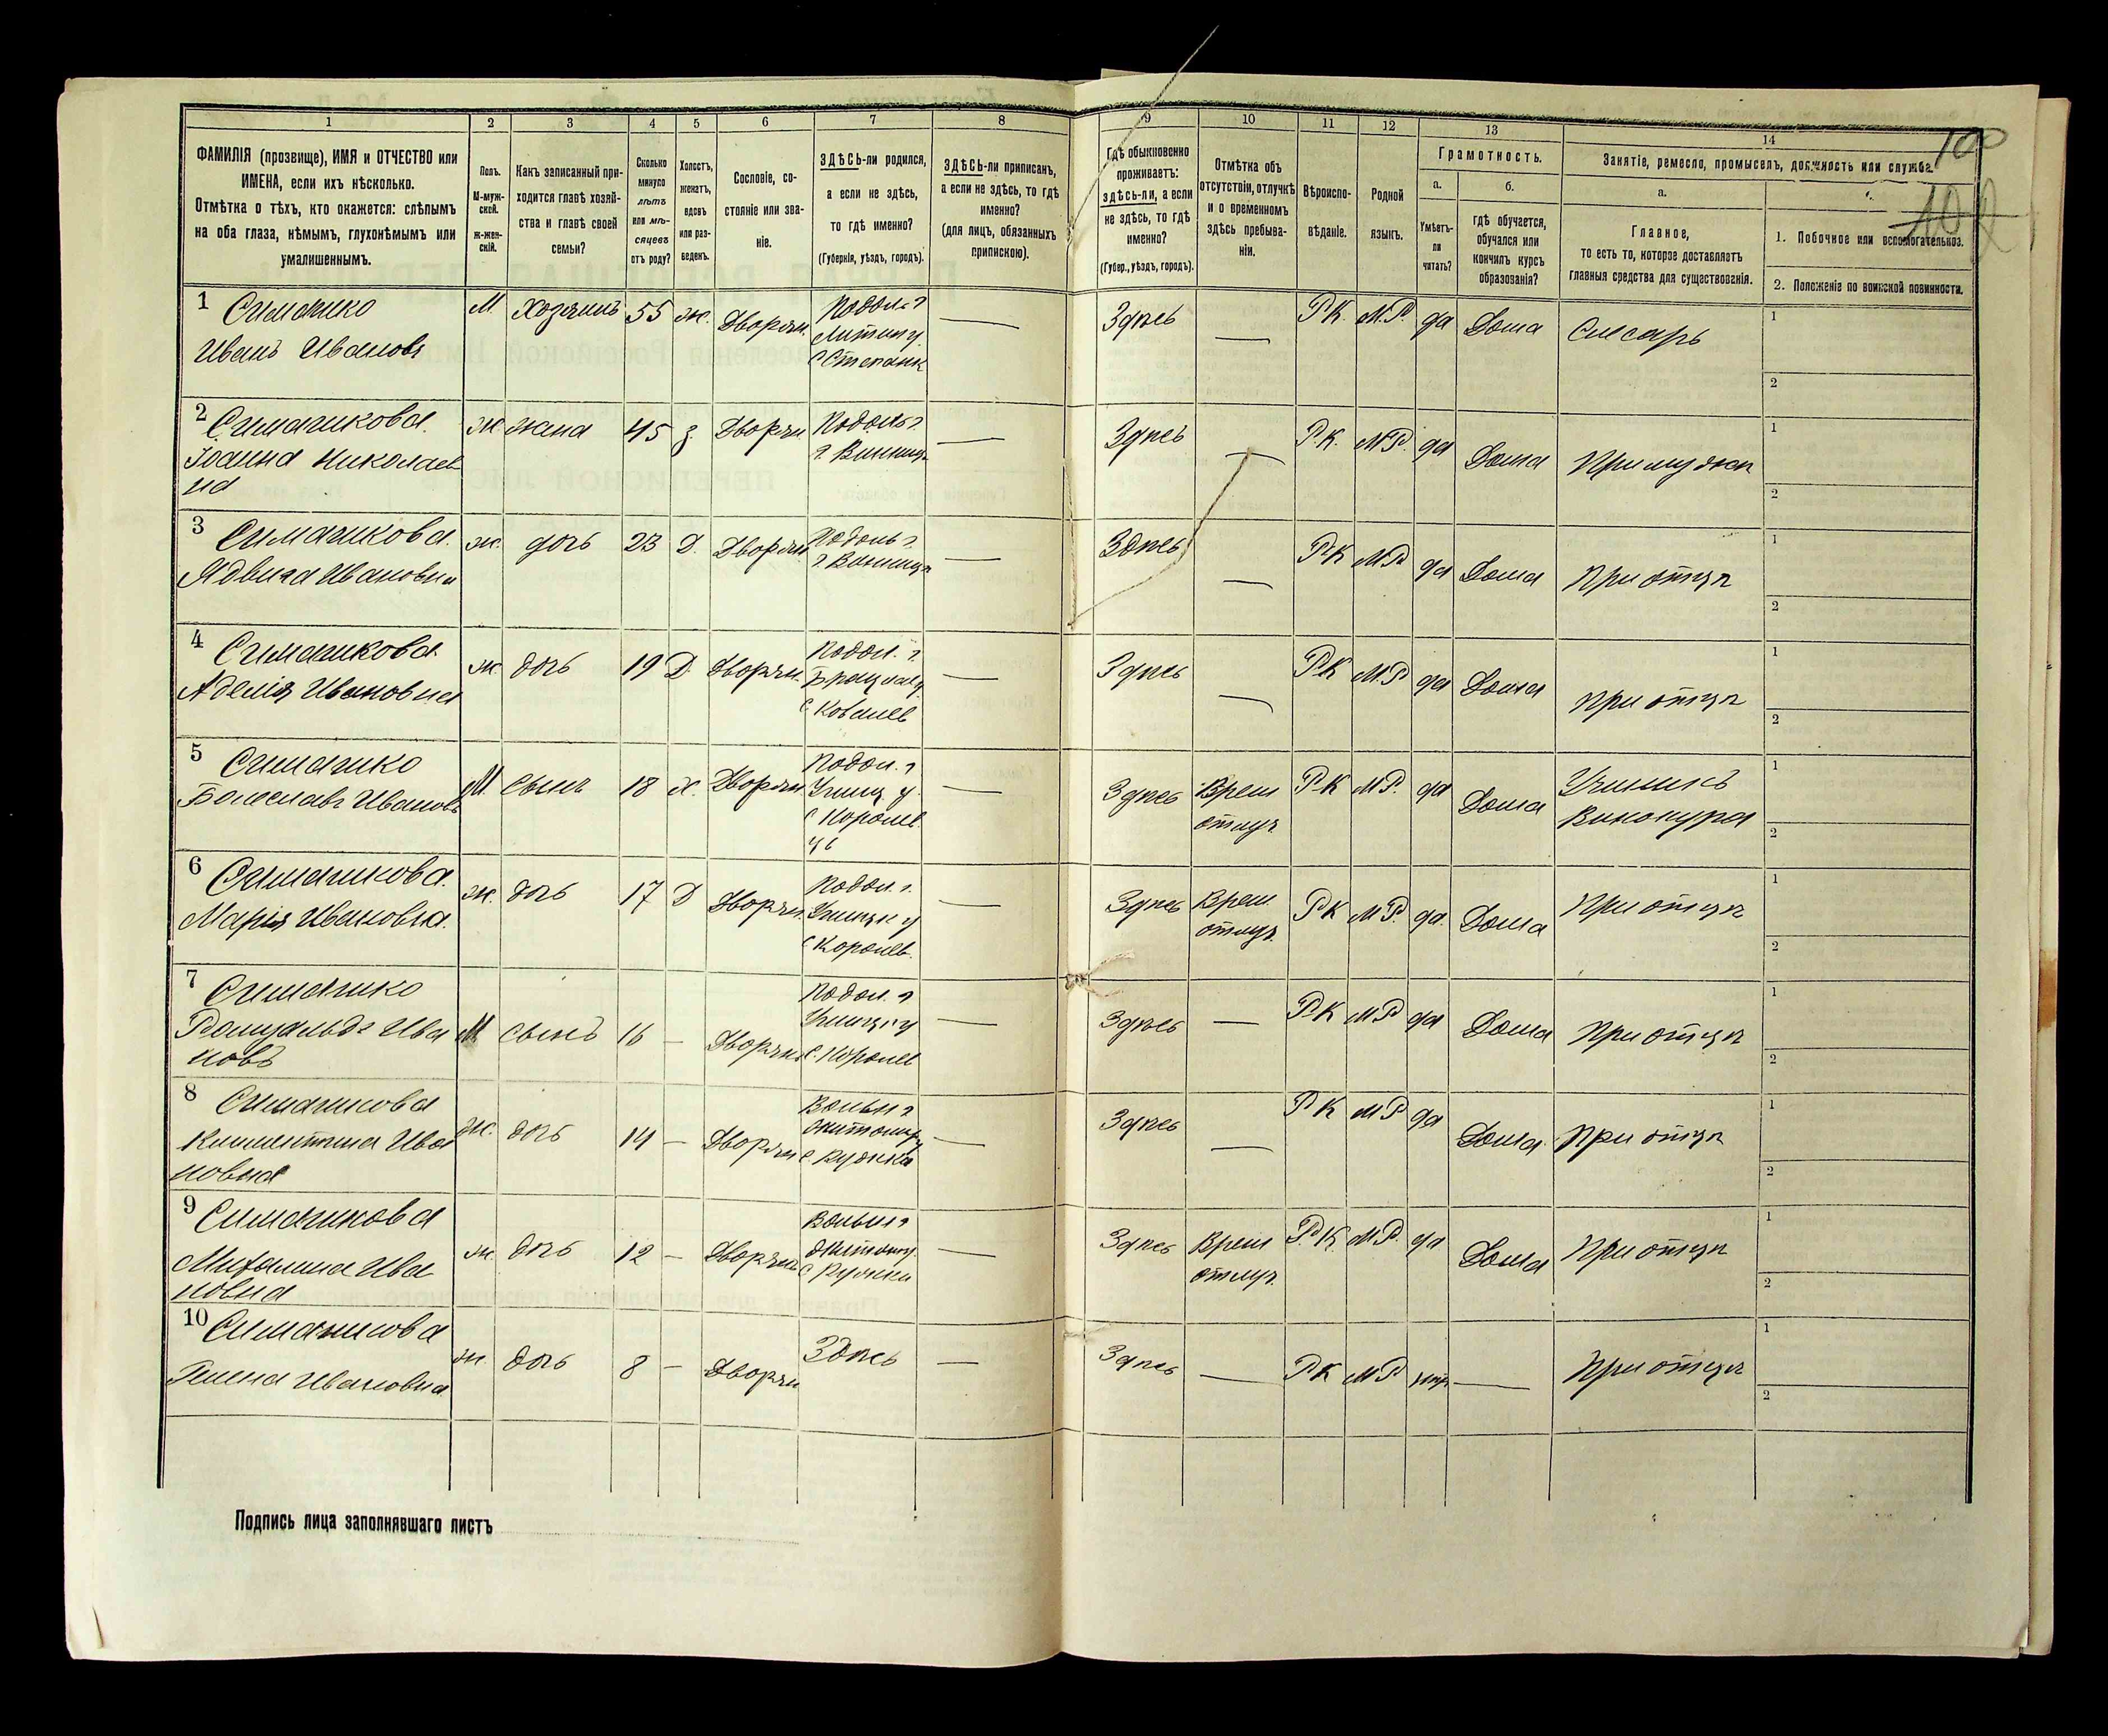 1 2 3 4 5 6 7 8 9 10 11 12 13 14
100
ФАМИЛІЯ (прозвище), ИМЯ и ОТЧЕСТВО или
ИМЕНА, если ихъ нѣсколько.
Отмѣтка о тѣхъ, кто окажется: слѣпымъ
на оба глаза, нѣмымъ, глухонѣмымъ или
умалишеннымъ.
Полъ.
М-муж-
ской.
ж-жен-
скій.
Какъ записанный при-
ходится главѣ хозяй-
ства и главѣ своей
семьи?
Сколько
минуло
лѣтъ
или мѣ-
сяцевъ
отъ роду?
Холостъ,
женатъ,
вдовъ
или раз-
веденъ.
Сословіе, со-
стояніе или зва-
ніе.
ЗДѢСЬ-ли родился,
а если не здѣсь,
то гдѣ именно?
(Губернія, уѣздъ, городъ).
ЗДѢСЬ-ли приписанъ,
а если не здѣсь, то гдѣ
именно?
(для лицъ, обязанныхъ
припискою).
Гдѣ обыкновенно
проживаетъ:
здѣсь-ли, а если
не здѣсь, то гдѣ
именно?
(Губер., уѣздъ, городъ).
Отмѣтка объ
отсутствіи, отлучкѣ
и о временномъ
здѣсь пребыва-
ніи.
Вѣроиспо-
вѣданіе.
Родной
языкъ.
Грамотность.
а.
Умѣетъ-
ли
читать?
б.
гдѣ обучается,
обучался или
кончилъ курсъ
образованія?
Занятіе, ремесло, промыселъ, должность или служба.
а.
Главное,
то есть то, которое доставляетъ
главныя средства для существованія.
1. Побочное или вспомогательное.
2. Положеніе по воинской повинности.
1 Симашко
Иванъ Ивановъ
М Хозяинъ 55 ж. Дворян
Подол. г
Литин у.
с Степанк
—
Здѣсь — Р.К. М.Р. да Дома Слесарь
1
2
2 Симашкова
Іоанна Николаев
на
ж жена 45 з Дворян
Подоль г
г. Винниц
—
Здѣсь — Р.К. М.Р. да Дома При мужѣ
1
2
3 Симашкова
Ядвига Ивановна
ж. дочь 23 Д. Дворян
Подоль г.
г Винница
—
Здѣсь — Р.К М.Р да Дома При отцѣ
1
2
4 Симашкова
Аделія Ивановна
ж дочь 19 Д Дворян
Подол. г.
Брацлав у
с. Ковалев
—
Здѣсь — Р.К М.Р да Дома При отцѣ
1
2
5 Симашко
Болеславъ Ивановъ
М. сынъ 18 х. Дворян
Подол. г
Ушиц у
с Королев
—
Здѣсь Врем
отлуч Р.К М.Р. да Дома Учились
Винокура
1
2
6 Симашкова
Марія Ивановна.
ж. дочь 17 Д Дворян
Подол. г.
Ушицк у
с Королев.
—
Здѣсь Врем
отлуч. Р.К М.Р. да. Дома При отцѣ
1
2
7 Симашко
Ромуальдъ Ива
новъ
М сынъ 16 — Дворян
Подол. г
Ушицк у
с. Королев
—
Здѣсь — Р.К М.Р да Дома При отцѣ
1
2
8 Симашкова
Климентина Ива
новна
ж. дочь 14 — Дворян
Волын г
Житомир у
с. Рудня
—
Здѣсь — Р К М.Р да Дома. При отцѣ
1
2
9 Симашкова
Михалина Ива
новна
ж. дочь 12 — Дворян
Волын г
Житом у.
с Рудни
—
Здѣсь Врем
отлуч. Р.К. М.Р. да Дома При отцѣ
1
2
10 Симашкова
Гелена Ивановна
ж. дочь 8 — Дворян Здѣсь —
Здѣсь — Р К М.Р нѣт — При отцѣ
1
2
Подпись лица заполнявшаго листъ